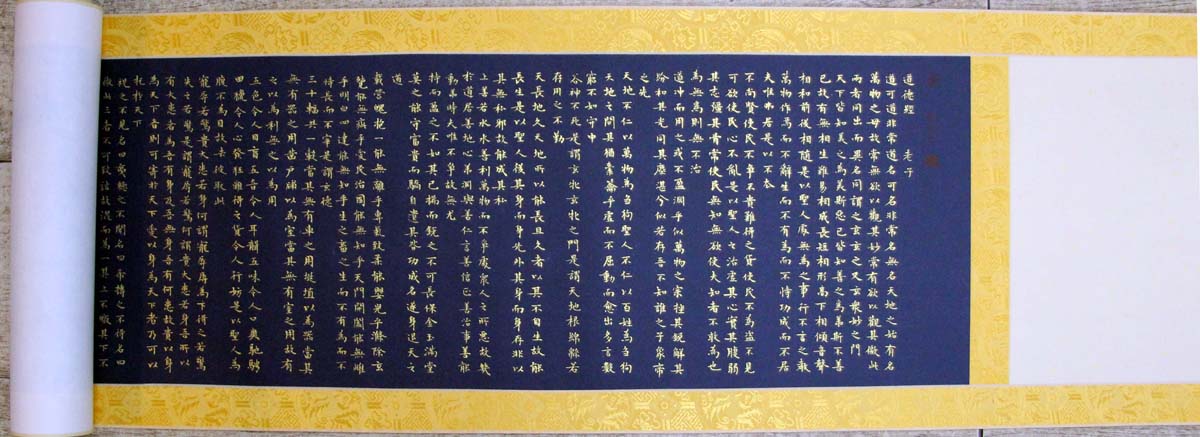 道德經　老子
道可道非常道名可名非常名無名天地之始有名
萬物之母故常無欲以觀其妙常有欲以觀其徼此
兩者同出而異名同謂之玄玄之又玄衆妙之門
天下皆知美之爲美斯惡已皆知善之爲善斯不善
已故有無相生難易相成長短相形高下相傾音聲
相和前後相隨是以聖人處無爲之事行不言之教
萬物作焉而不辭生而不有爲而不恃功成而不居
夫唯弗居是以不去
不尚賢使民不爭不貴難得之貨使民不爲盜不見
可欲使民心不亂是以聖人之治虛其心實其腹弱
其志強其骨常使民無知無欲使夫知者不敢爲也
爲無爲則無不治
道沖而用之或不盈淵乎似萬物之宗挫其銳解其
紛和其光同其塵湛兮似若存吾不知誰之子象帝
之先
天地不仁以萬物爲芻狗聖人不仁以百姓爲芻狗
天地之間其猶橐籥乎虛而不屈動而愈出多言數
窮不如守中
谷神不死是謂玄牝玄牝之門是謂天地根綿綿若
存用之不勤
天長地久天地所以能長且久者以其不自生故能
長生是以聖人後其身而身先外其身而身存非以
其無私邪故能成其私
上善若水水善利萬物而不爭處衆人之所惡故幾
於道居善地心善淵與善仁言善信正善治事善能
動善時夫唯不爭故無尤
持而盈之不如其已揣而銳之不可長保金玉滿堂
莫之能守富貴而驕自遺其咎功成名遂身退天之
道
載營魄抱一能無離乎專氣致柔能嬰兒乎滌除玄
覽能無疵乎愛民治國能無知乎天門開闔能無雌
乎明白四達能無知乎生之畜之生而不有爲而不
恃長而不宰是謂玄德
三十輻共一轂當其無有車之用埏埴以爲器當其
無有器之用鑿戶牖以爲室當其無有室之用故有
之以爲利無之以爲用
五色令人目盲五音令人耳聾五味令人口爽馳騁
田獵令人心發狂難得之貨令人行妨是以聖人爲
腹不爲目故去彼取此
寵辱若驚貴大患若身何謂寵辱辱爲下得之若驚
失之若驚是謂寵辱若驚何謂貴大患若身吾所以
有大患者爲吾有身及吾無身吾有何患故貴以身
爲天下者則可寄於天下愛以身爲天下者乃可以
託於天下
視之不見名曰夷聽之不聞名曰希摶之不得名曰
微此三者不可致詰故混而爲一其上不皦其下不